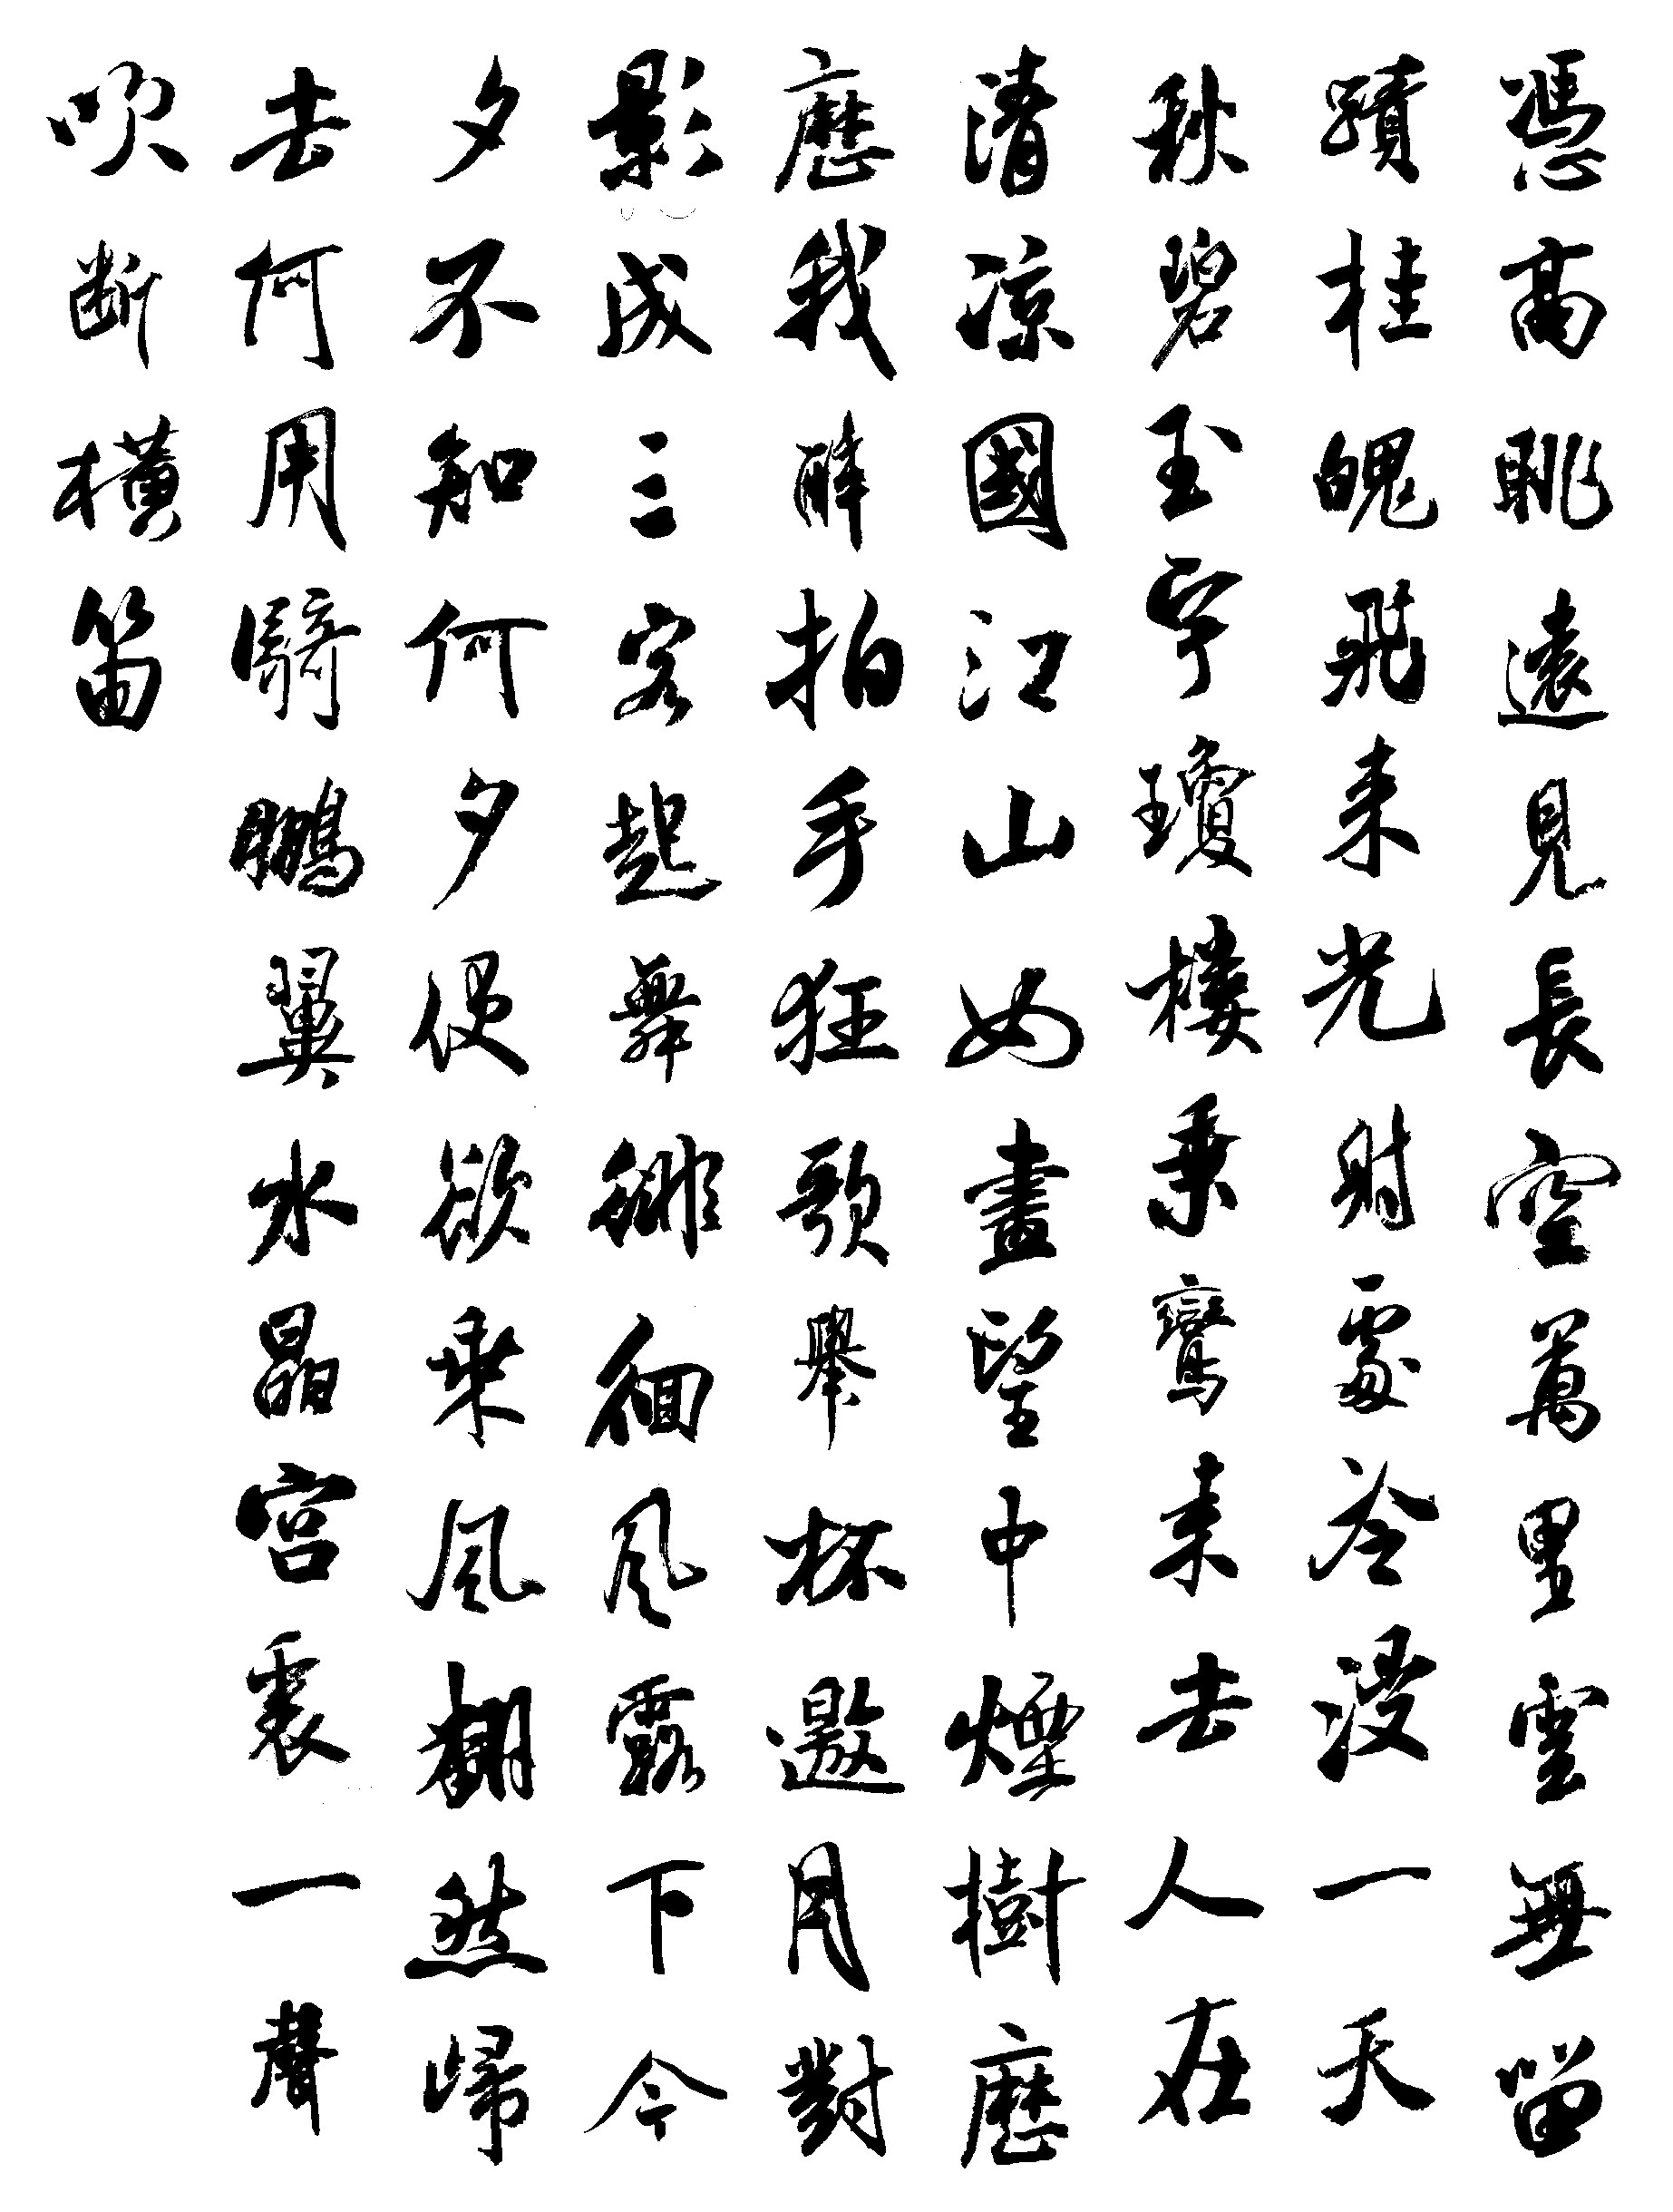 憑高眺遠見長空萬里雲無留
蹟桂魄飛来光射處冷浸一天
秋碧玉宇瓊樓乗鸞来去人在
清涼國江山如畫望中煙樹歷
歷我醉拍手狂歌舉杯邀月對
影成三客起舞徘徊風露下今
夕不知何夕便欲乗風翻然歸
去何用騎鵬翼水晶宮裏一聲
吹斷橫笛